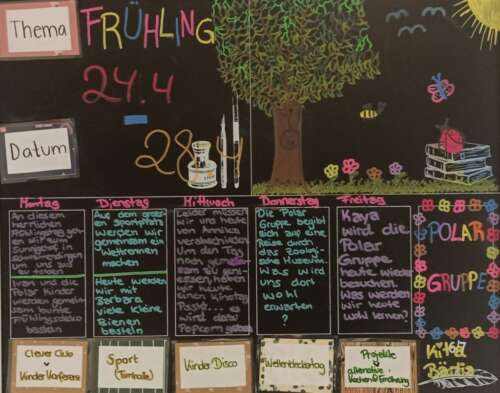 Thema
FRÜHLING
24.4
Datum
28.4
Montag
An diesem
herrlichen
gen wir
Ivan und die
Polar Kinder
werden gemein-
sam bunte
basteln
Dienstag
Aus dem gros-
sen Sportplatz
werden wir
gemeinsam ein
Wettrennen
machen
Heute werden
wir mit
Barbara
viele kleine
Bienen
basteln
Mittwoch
Leider müssen
wir uns heute
von Annika
verabschieden
Um den Tag
noch
sam zu geni-
essen
wir
heute einen
es
wird dazu
Popcorn
Donnerstag
Die Polar
Gruppe begibt
sich auf eine
Reise durch
das Zoologi-
sche Museum.
Was wird
uns dort
wohl
erwarten
?
Freitag
Kaya
wird die
Polar
Gruppe
heute wieder
besuchen.
Was werden
wir heute
wohl lernen?
POLAR
GRUPPE
Kita
Clever Club
Kinder Konferenz
Sport
(Turnhalle)
Kinder Disco
Weltentdeckertag
Projekte
alternative
Kochen & Ernährung